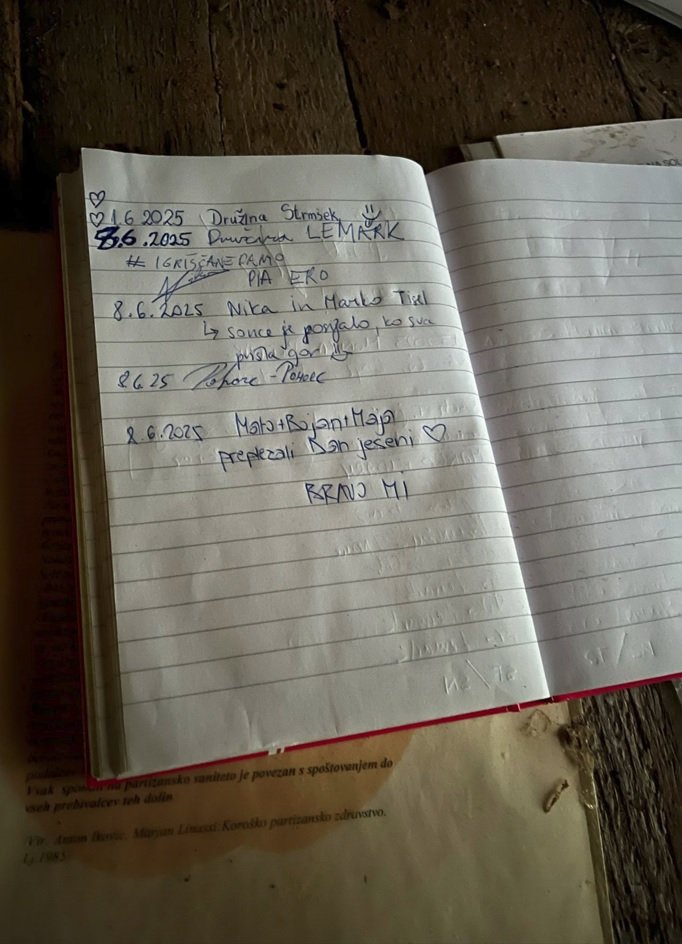 ♡
♡ 1.6 2025 Družina Strmšek
8.6.2025 Družina LEMARK
# IGRIŠČANEDAMO
PIA ERO
8.6.2025 Nika in Marko Tisl
↳ sonce je posijalo, ko sva
prišla gor
8.6.25 Pohorc - Pohorc
8.6.2025 Mato+Bojan+Maja
preplezali Dan jeseni ♡
BRAVO MI
Vsak na partizansko saniteto je povezan s spoštovanjem do
vseh prebivalcev teh dolin.
Vir: Anton Ikovic, Marjan Linassi: Koroško partizansko zdravstvo.
Lj.1985